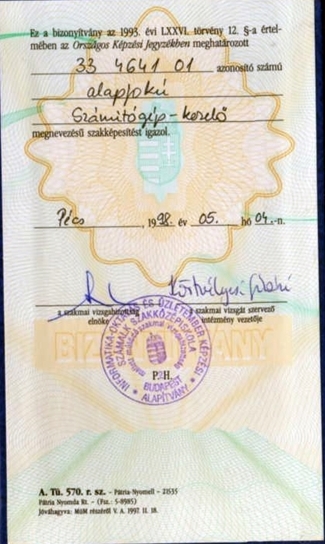 Ez a bizonyítvány az 1993. évi LXXVI. törvény 12. §-a értel-
mében az Országos Képzési Jegyzékben meghatározott
33 4641 01 azonosító számú
alapfokú
Számítógép-kezelő
megnevezésű szakképesítést igazol.
Pécs, 1998. év 05. hó 04.-n.
a szakmai vizsgabizottság
elnöke
a szakmai vizsgát szervező
intézmény vezetője
INFORMATIKA-OKTATÁS ÉS ÜZLETEMBER KÉPZÉSI ALAPÍTVÁNY
SZÁMALK SZAKKÖZÉPISKOLA
BUDAPEST
P.H.
BIZONYÍTVÁNY
A. Tü. 570. r. sz. - Pátria-Nyomell - 21535
Pátria Nyomda Rt. - (Fsz.: 5-8985)
Jóváhagyva: MüM részéről V. A. 1997. II. 18.